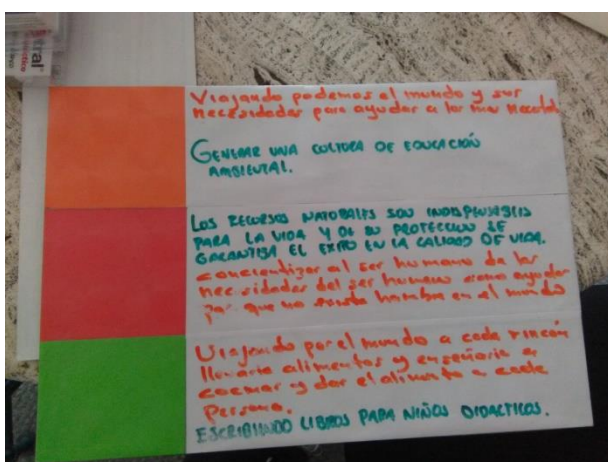 tral
Viajando podemos el mundo y sus
necesidades para ayudar a los mas
GENERAR UNA CULTURA DE EDUCACIÓN
AMBIENTAL.
LOS RECURSOS NATURALES SON INDISPENSABLES
PARA LA VIDA Y DE SU PROTECCION SE
GARANTIZA EL EXITO EN LA CALIDAD DE VIDA.
concientizar al ser humano de las
necesidades del ser humano como ayudar
para que no exista hambre en el mundo
Viajando por el mundo a cada rincón
llevaria alimentos y enseñaria a
cocinar y dar el alimento a cada
Persona.
ESCRIBIENDO LIBROS PARA NIÑOS DIDACTICOS.